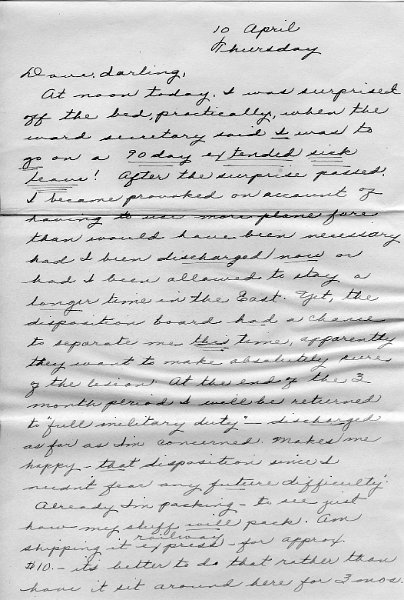 10 April
Thursday
Dave, darling,
At noon today, I was surprised
off the bed, practically, when the
ward secretary said I was to
go on a 90 day extended sick
leave! After the surprise passed,
I became provoked on account of
having to use more plane fare
than would have been necessary
had I been discharged now or
had I been allowed to stay a
longer time in the East. Yet, the
disposition board had a chance
to separate me this time, apparently
they want to make absolutely sure
of the lesion! At the end of the 3
month period I will be returned
to "full military duty" — discharged
as far as I'm concerned. Makes me
happy - that disposition since I
needn't fear any future difficulty.
Already I'm packing - to see just
how my stuff will pack. Am
shipping it railway express - for approx.
$10. - it's better to do that rather than
have it sit around here for 3 mos.